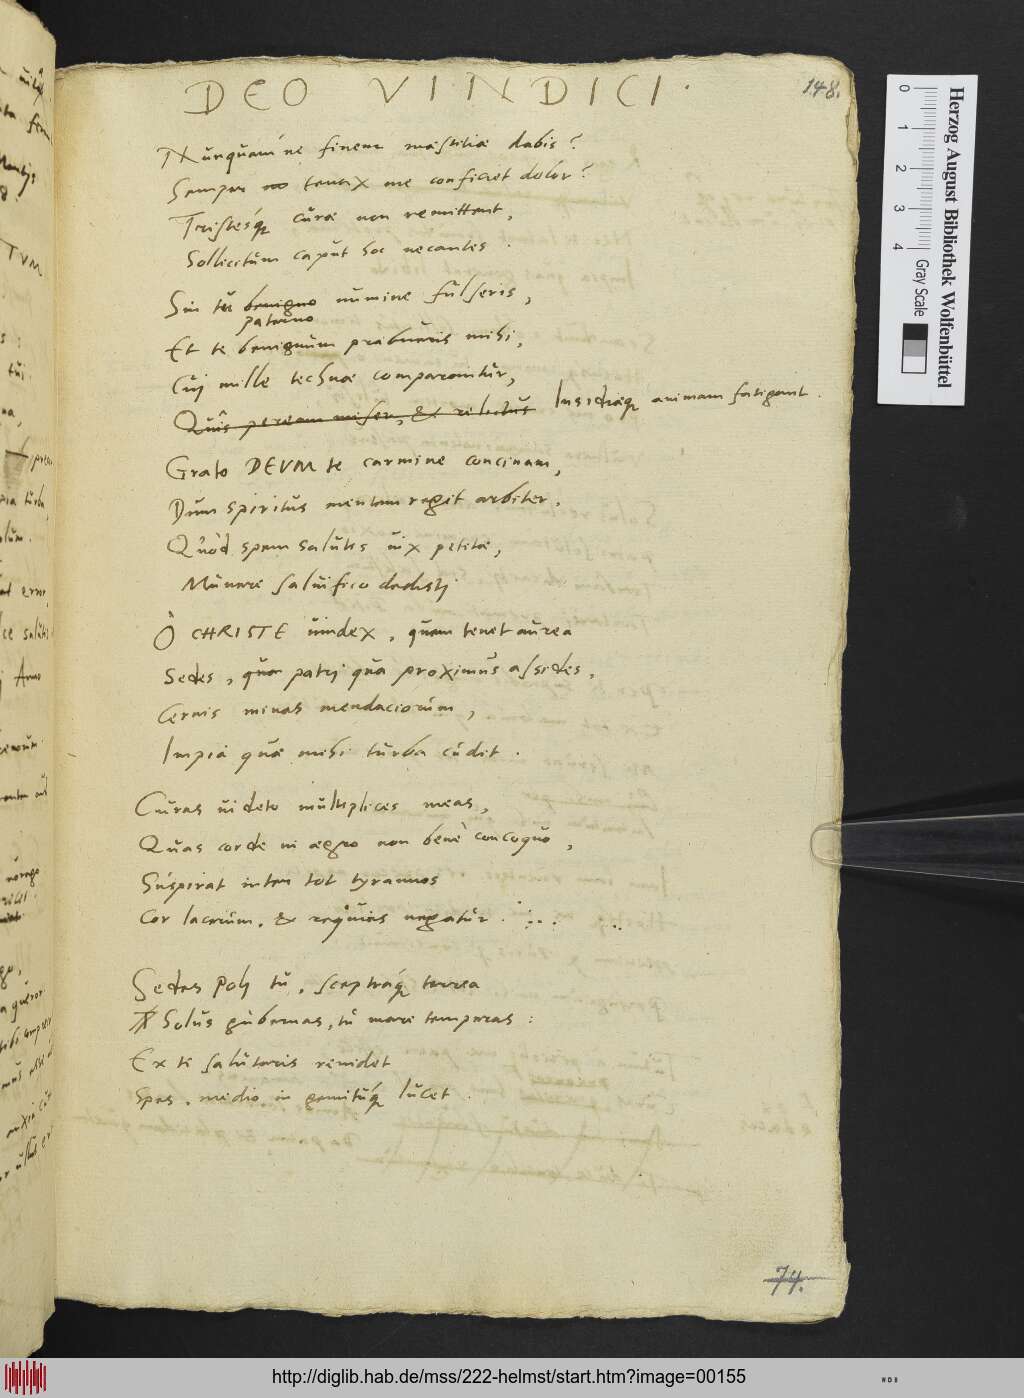 148.
DEO VINDICI.
Nunquámne finem mæstitiæ dabis?
Semper tenax me conficiet dolor?
Tristésq; curæ non remittent,
Sollicitùm caput hoc necantes.
Sin tu benigno numine fulseris,
paterno
Et te benignum præbueris mihi,
Cuj mille technæ comparantur,
Quîs peream miser, & relictus Insidiæq; animam fatigant.
Grato DEVM te carmine concinam,
Dum spiritus mentem reget arbiter.
Quòd spem salutis uix petitæ,
Munere saluifico dedistj
Ô CHRISTE uindex, quem tenet aurea
Sedes, qua patrj qua proximus assides,
Cernis minas mendaciorum,
Impia quæ mihi turba cudit.
Curas uideto multiplices meas,
Quas corde in ægro non benè concoquo,
Suspirat inter tot tyrannos
Cor lacerum, & requies negatur.
Sedes Polj tu, sceptráq; terrea
Solus gubernas, tu mare temperas:
Ex te salutaris renidet
Spes, medio in gemitúq; lucet.
74.
0
1
2
3
4
Herzog August Bibliothek Wolfenbüttel
Gray Scale
http://diglib.hab.de/mss/222-helmst/start.htm?image=00155